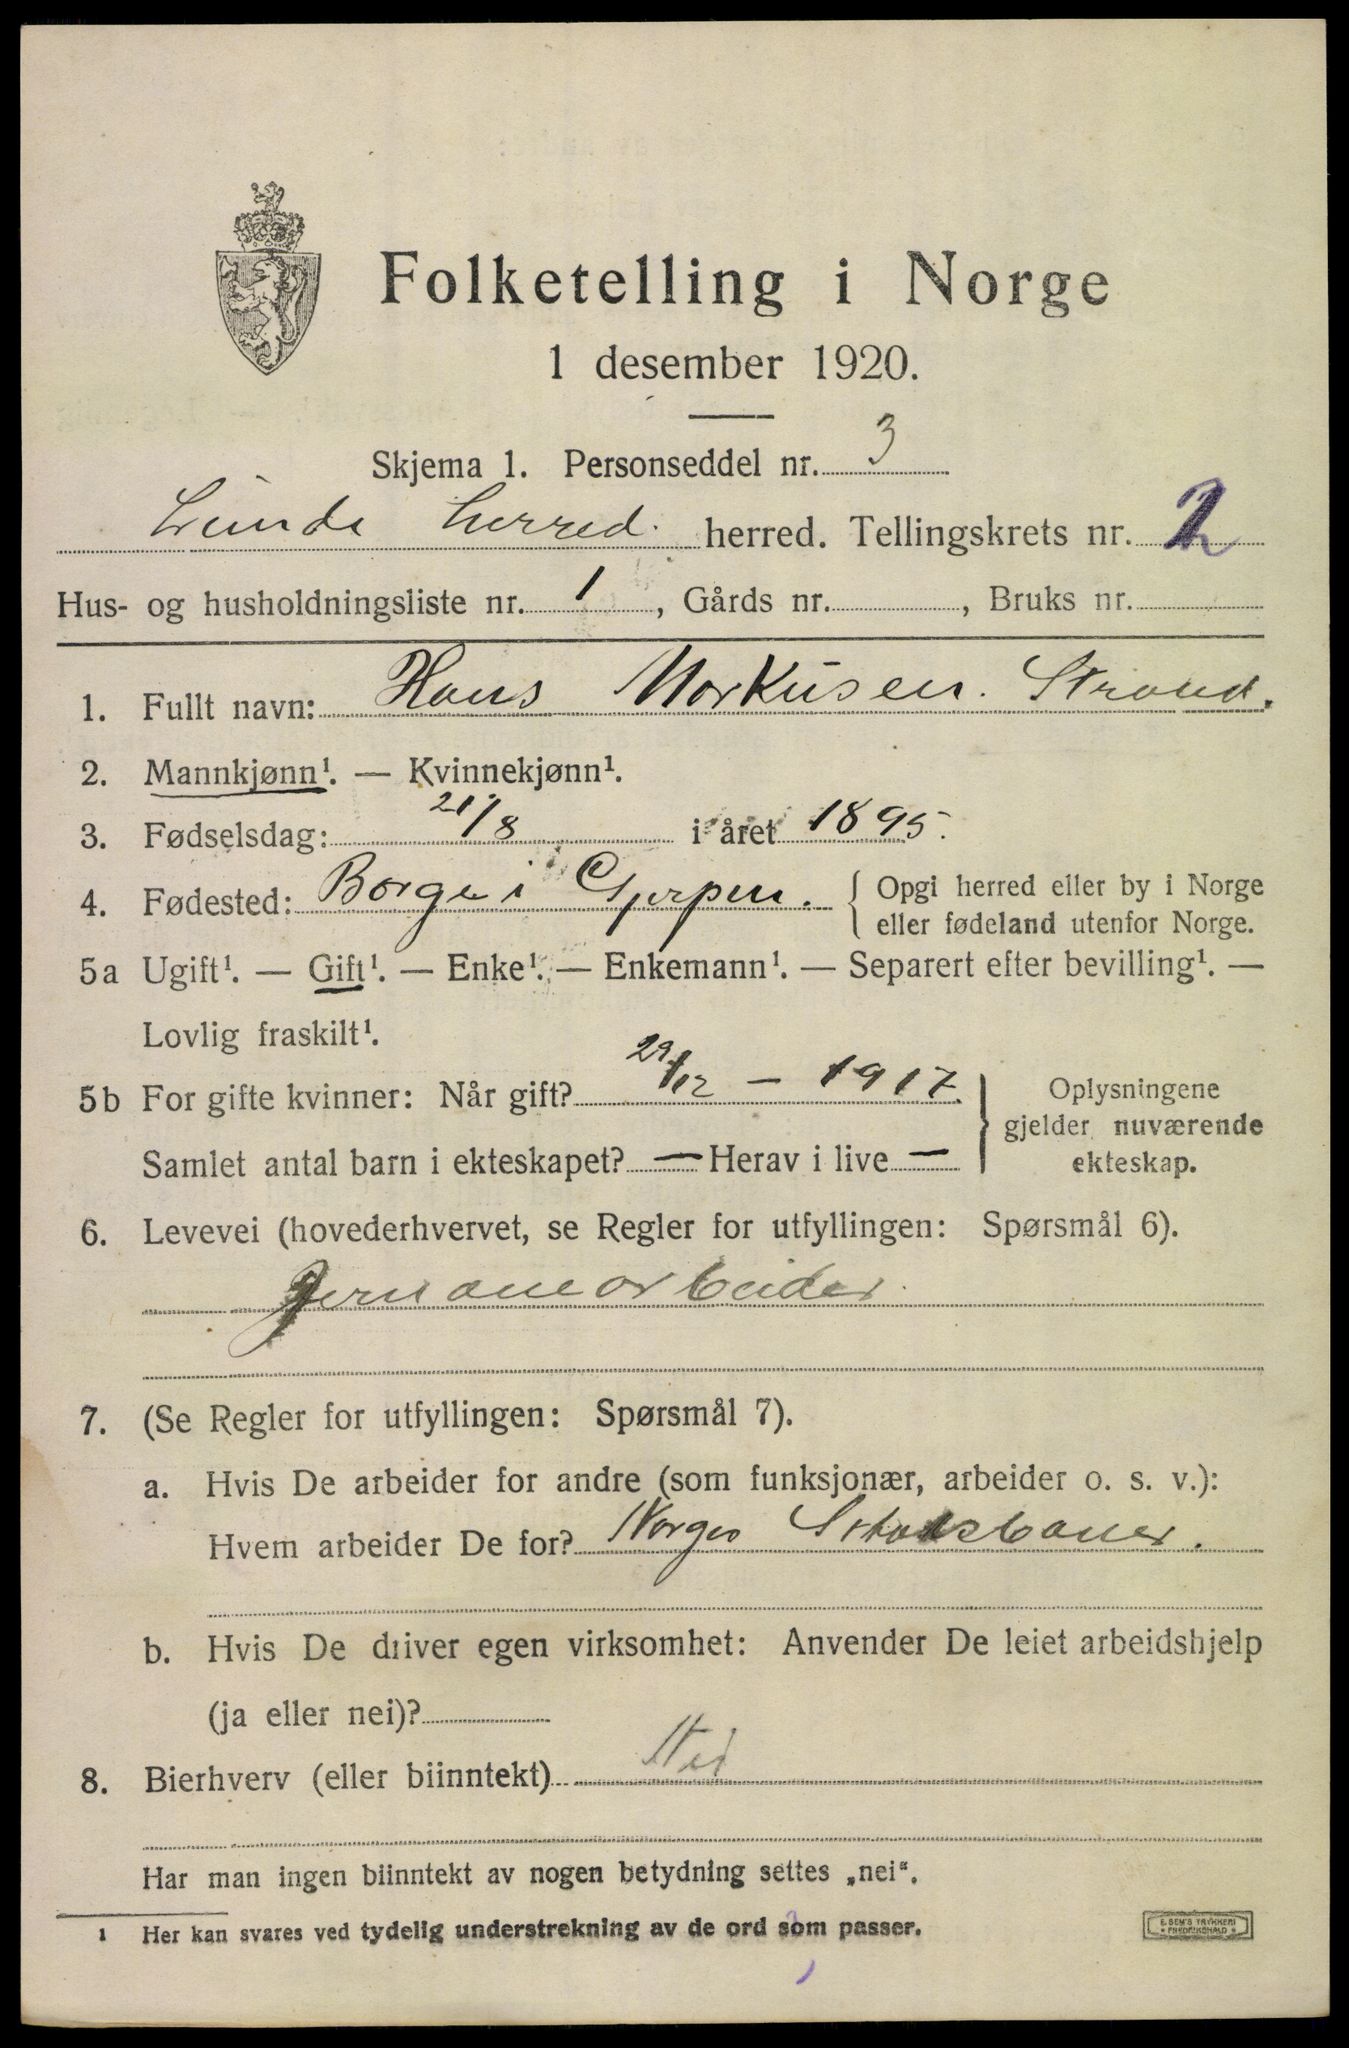 Folketelling i Norge
1 desember 1920.
Skjema 1. Personseddel nr. 3
Lunde herred. herred. Tellingskrets nr. 2
Hus- og husholdningsliste nr. 1, Gårds nr. , Bruks nr.
1. Fullt navn: Hans Markusen. Strand.
2. Mannkjønn¹. — Kvinnekjønn¹.
3. Fødselsdag: 21/8 i året 1895.
4. Fødested: Borge i Gjerpen. { Opgi herred eller by i Norge
eller fødeland utenfor Norge.
5a Ugift¹. — Gift¹. — Enke¹. — Enkemann¹. — Separert efter bevilling¹. —
Lovlig fraskilt¹.
5b For gifte kvinner: Når gift? 29/12 — 1917. } Oplysningene
gjelder nuværende
Samlet antal barn i ekteskapet? — Herav i live — ekteskap.
6. Levevei (hovederhvervet, se Regler for utfyllingen: Spørsmål 6).
Jernanearbeider.
7. (Se Regler for utfyllingen: Spørsmål 7).
a. Hvis De arbeider for andre (som funksjonær, arbeider o. s. v.):
Hvem arbeider De for? Norges Statsbaner.
b. Hvis De driver egen virksomhet: Anvender De leiet arbeidshjelp
(ja eller nei)?
8. Bierhverv (eller biinntekt) Nei
Har man ingen biinntekt av nogen betydning settes „nei“.
1 Her kan svares ved tydelig understrekning av de ord som passer.
E. SEM'S TRYKKERI
* FREDRIKSHALD *